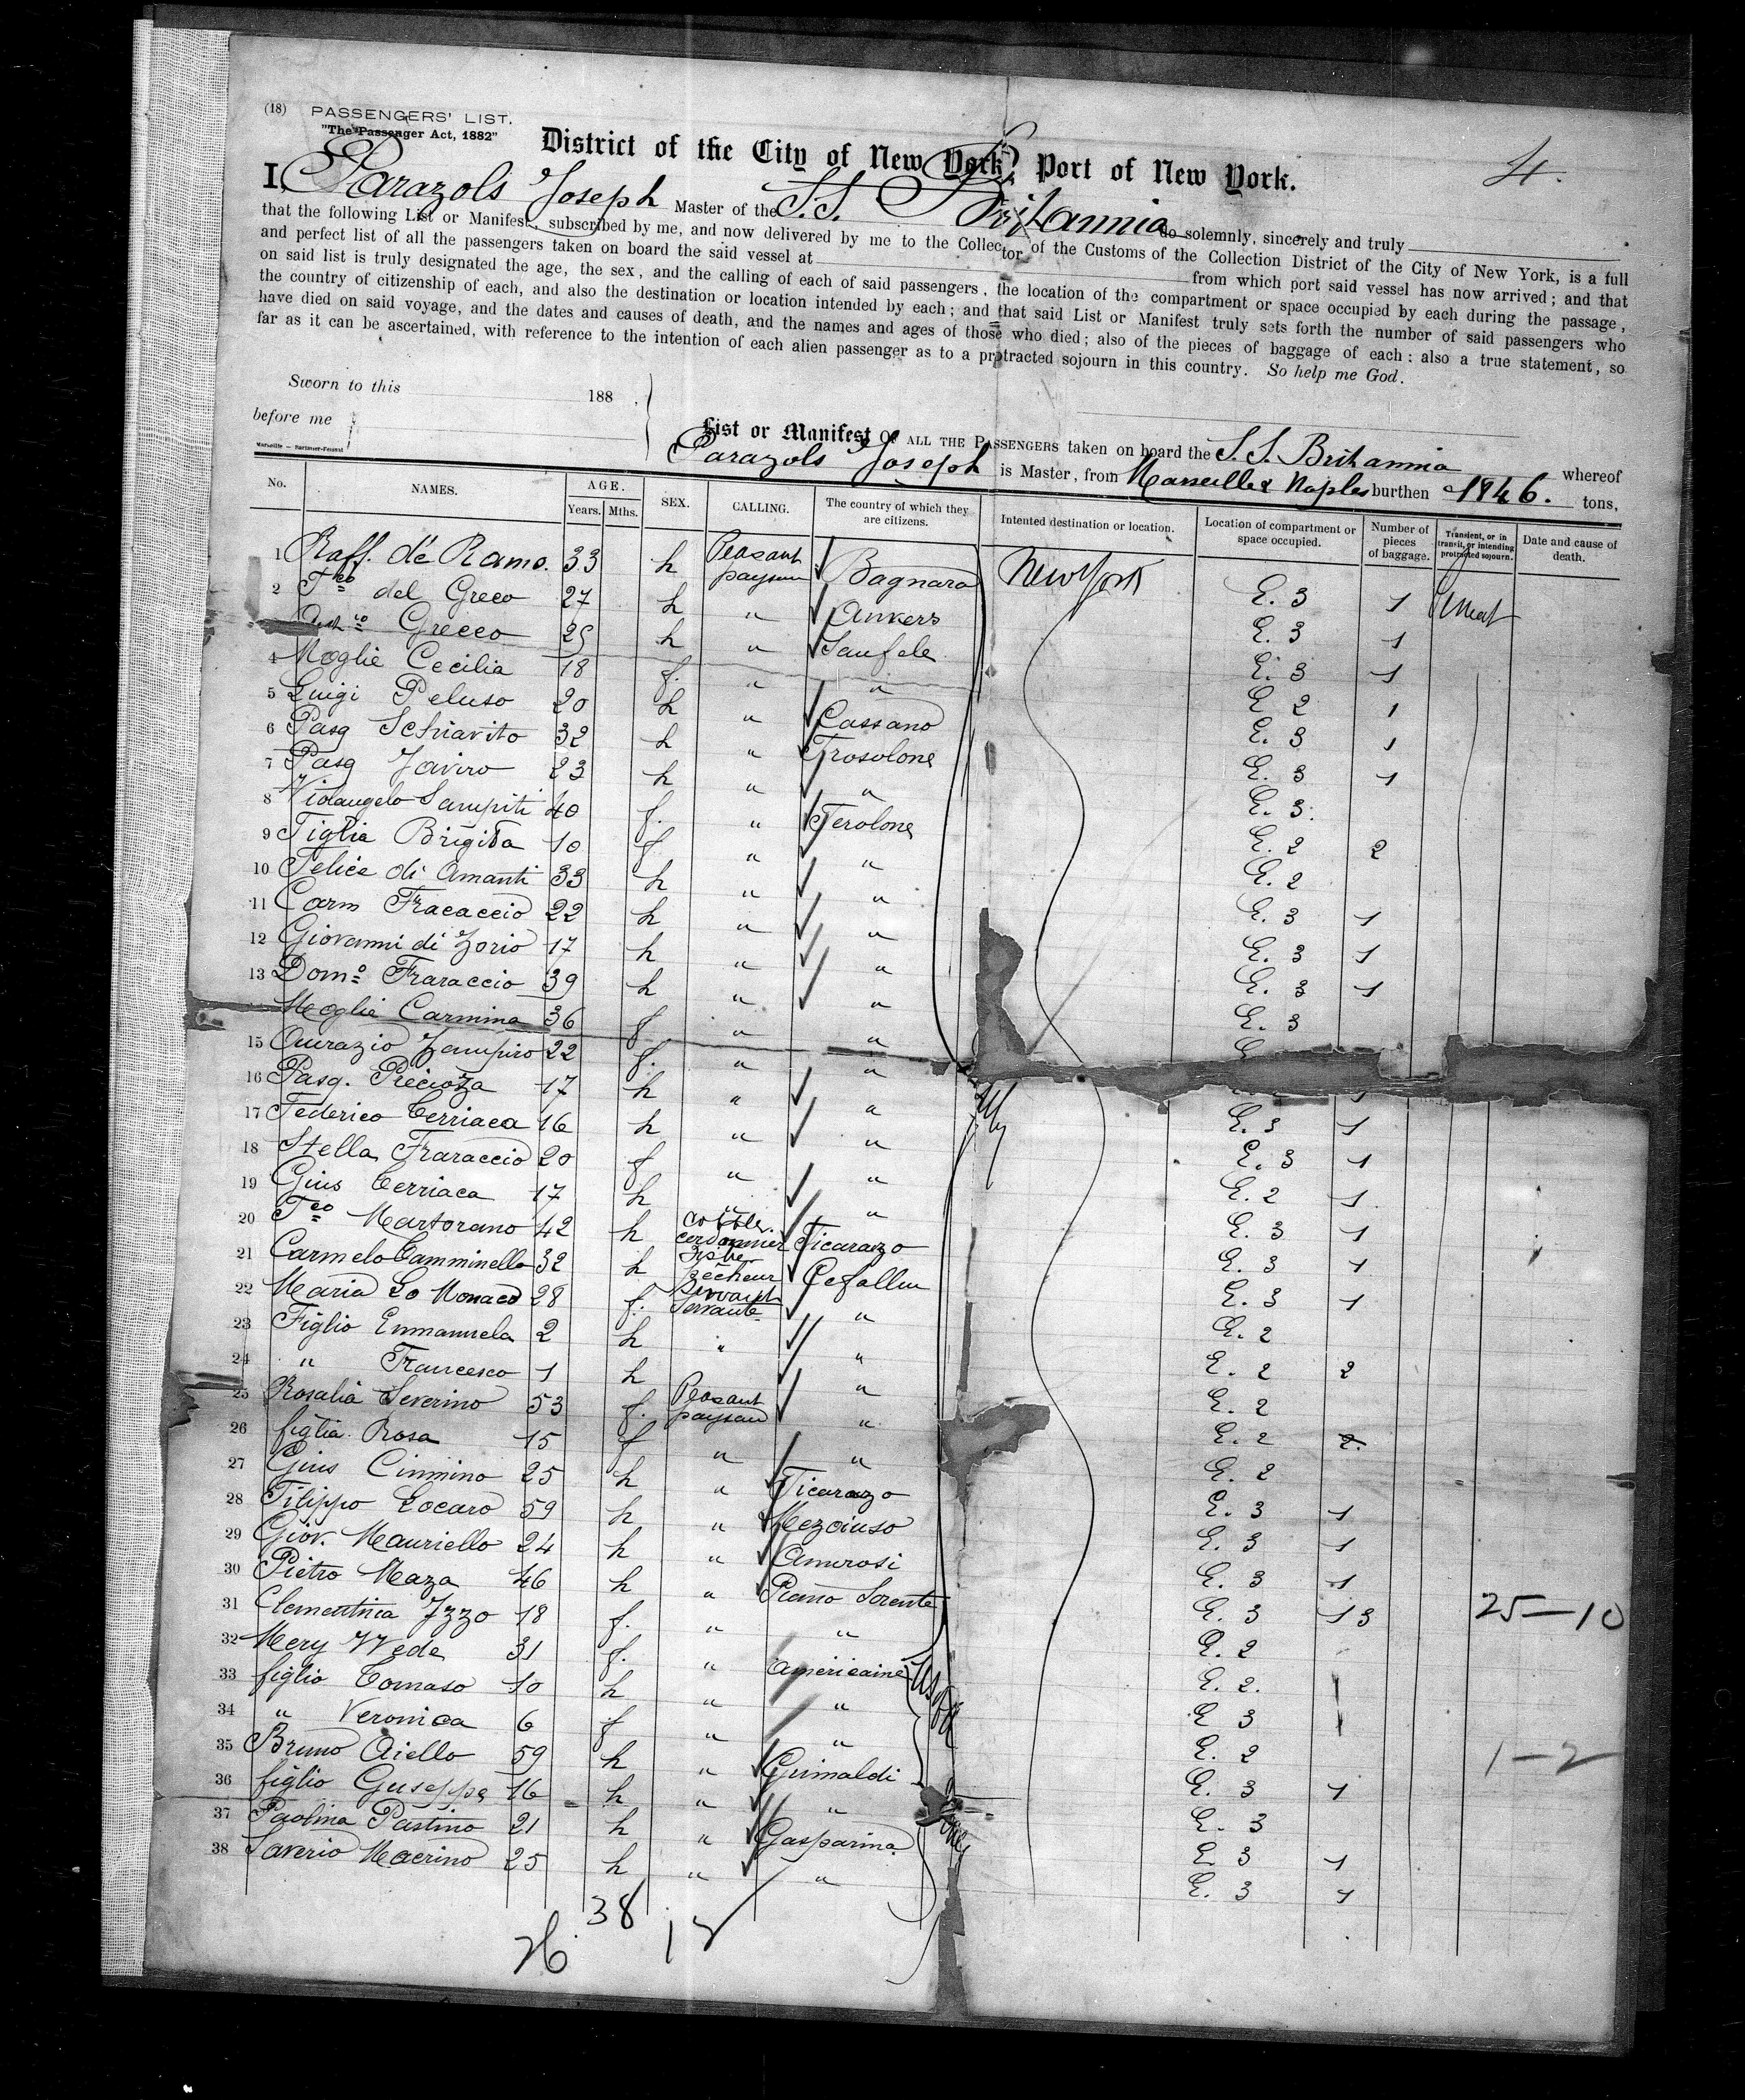 (18) PASSENGERS' LIST.
"The Passenger Act, 1882"
4.
District of the City of New York, Port of New York.
I, Parazols Joseph Master of the S.S. Britannia do solemnly, sincerely and truly
that the following List or Manifest, subscribed by me, and now delivered by me to the Collector of the Customs of the Collection District of the City of New York, is a full
and perfect list of all the passengers taken on board the said vessel at from which port said vessel has now arrived; and that
on said list is truly designated the age, the sex, and the calling of each of said passengers, the location of the compartment or space occupied by each during the passage,
the country of citizenship of each, and also the destination or location intended by each; and that said List or Manifest truly sets forth the number of said passengers who
have died on said voyage, and the dates and causes of death, and the names and ages of those who died; also of the pieces of baggage of each: also a true statement, so
far as it can be ascertained, with reference to the intention of each alien passenger as to a protracted sojourn in this country. So help me God.
Sworn to this 188 ,
before me
List or Manifest OF ALL THE PASSENGERS taken on board the S.S. Britannia whereof
Parazols Joseph is Master, from Marseille & Naples burthen 1846. tons,
No. NAMES. AGE. Years. Mths. SEX. CALLING. The country of which they are citizens. Intented destination or location. Location of compartment or space occupied. Number of pieces of baggage. Transient, or in transit, or intending protracted sojourn. Date and cause of death.
1 Raff. de Ramo. 33 h Peasant paysan Bagnara New York E. 3 1
2 Fco del Greco 27 h " Ankers E. 3 1
Grecco 25 h " Sanfele E. 3 1
4 Moglie Cecilia 18 f. " " E 2 1
5 Luigi Peluso 20 h " Cassano E. 3 1
6 Pasq Schiavito 32 h " Frosolone E. 3 1
7 Pasq 23 h " " E. 3.
8 40 f. " Ferolone E. 2 2
9 Figlia Brigida 10 f. " " E. 2
10 Felice di Amanti 33 h " " E. 3 1
11 Carm Fracaccio 22 h " " E. 3 1
12 Giovanni di Zorio 17 h " " E. 3 1
13 Domo Fraraccio 39 h " " E. 3
Moglie Carmina 36 f " "
15 22 f. " "
16 Pasq. 17 h " " E. 3 1
17 Federico Cerriaca 16 h " " E. 3 1
18 Stella Fraraccio 20 f " " E. 2 1
19 Gius Cerriaca 17 h " " E. 3 1
20 Fco Martorano 42 h cordonnier Ficarazo E. 3 1
21 Carmelo Camminella 32 h pêcheur Cefallu E. 3 1
22 Maria Lo Monaco 28 f. Servant Servante " E. 2
23 Figlio Emmanuela 2 h " " E. 2 2
24 " Francesco 1 h " E. 2
25 Rosalia Severino 53 f. Peasant paysan " E. 2 2.
26 figlia Rosa 15 f " " E. 2
27 Gius Cimmino 25 h " Ficarazo E. 3 1
28 Filippo Locaro 59 h " Mezoiuso E. 3 1
29 Giov. Mauriello 24 h " Amurosi E. 3 1
30 Pietro Maza 46 h " Piano Sorento E. 3 13
31 Clementina Izzo 18 f. " " E. 2
32 Mery Wede 31 f. " américaine E. 2.
33 figlio Tomaso 10 h " " E 3
34 " Veronica 6 f " " E. 2
35 Bruno Aiello 59 h " Grimaldi E. 3 1
36 figlio Guseppe 16 h " " E. 3
37 Paolina Pastino 21 h " Gasparina E 3 1
38 Saverio Macrino 25 h " " E. 3 1
25-10
1-2
38